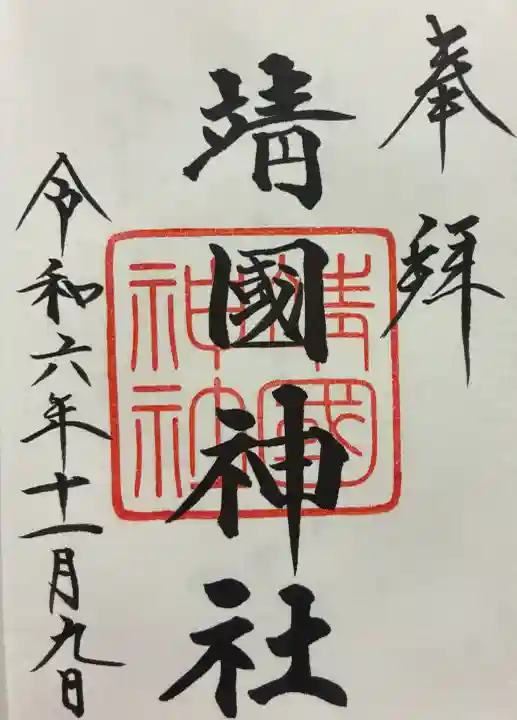 奉拝
靖國神社
靖國神社
令和六年十一月九日